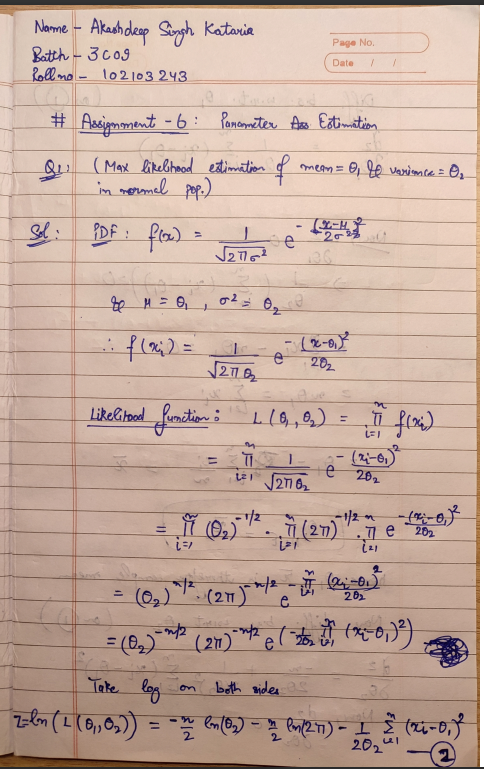 Name - Akashdeep Singh Kataria
Page No.
Batch - 3CO9
Date / /
Roll no - 102103243
# Assignment - 6 : Parameter Ass Estimation
Q1: (Max likelihood estimation of mean = θ₁ & variance = θ₂
in normal pop.)
Sol: PDF: f(x) = 1/√(2πσ²) e^(-(x-μ)²/2σ²)
& μ = θ₁ , σ² = θ₂
∴ f(xᵢ) = 1/√(2πθ₂) e^(-(x-θ₁)²/2θ₂)
Likelihood function: L(θ₁, θ₂) = ∏ᵢ₌₁ⁿ f(xᵢ)
= ∏ᵢ₌₁ⁿ 1/√(2πθ₂) e^(-(xᵢ-θ₁)²/2θ₂)
= ∏ᵢ₌₁ⁿ (θ₂)^(-1/2) · ∏ᵢ₌₁ⁿ (2π)^(-1/2) · ∏ᵢ₌₁ⁿ e^(-(xᵢ-θ₁)²/2θ₂)
= (θ₂)^(-n/2) · (2π)^(-n/2) e^(-∏ᵢ₌₁ⁿ (xᵢ-θ₁)²/2θ₂)
= (θ₂)^(-n/2) (2π)^(-n/2) e^(-1/2θ₂ ∏ᵢ₌₁ⁿ (xᵢ-θ₁)²)
Take log on both sides
Z = ln(L(θ₁,θ₂)) = -n/2 ln(θ₂) - n/2 ln(2π) - 1/2θ₂ ∑ᵢ₌₁ⁿ (xᵢ-θ₁)²